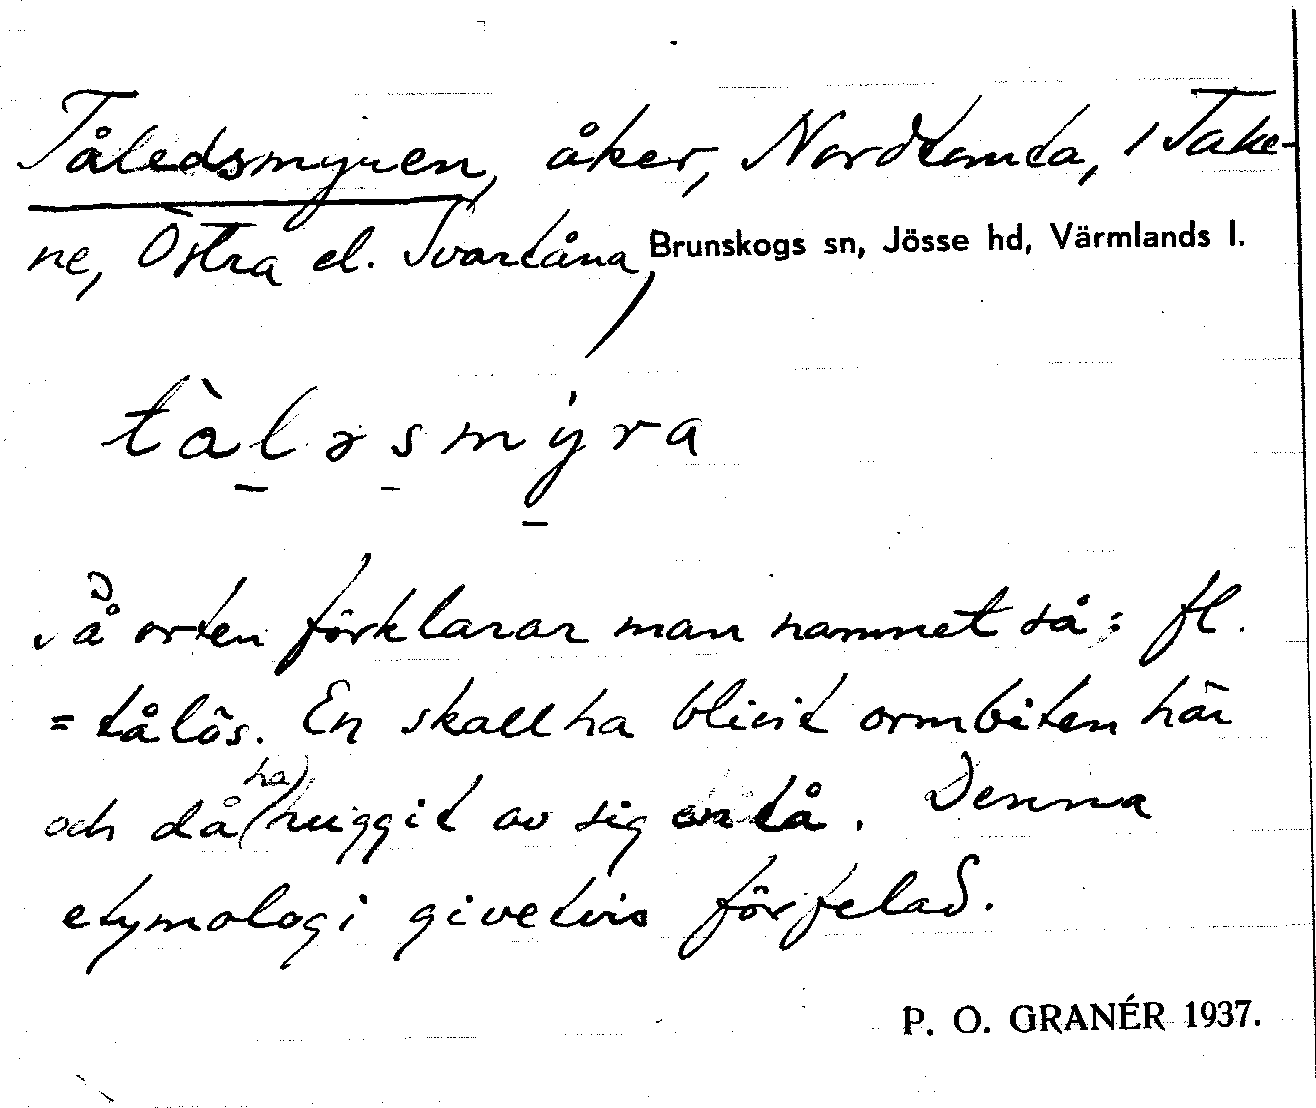 Tåledsmyren, åker, Nordtomta, 1 Take-
ne, Östra el. Svartåna, Brunskogs sn, Jösse hd, Värmlands l.
tàləsmýra
På orten förklarar man namnet så: fl.
= tålös. En skall ha blivit ormbiten här
och då (ha) huggit av sig en tå. Denna
etymologi givetvis förfelad.
P. O. GRANÉR 1937.